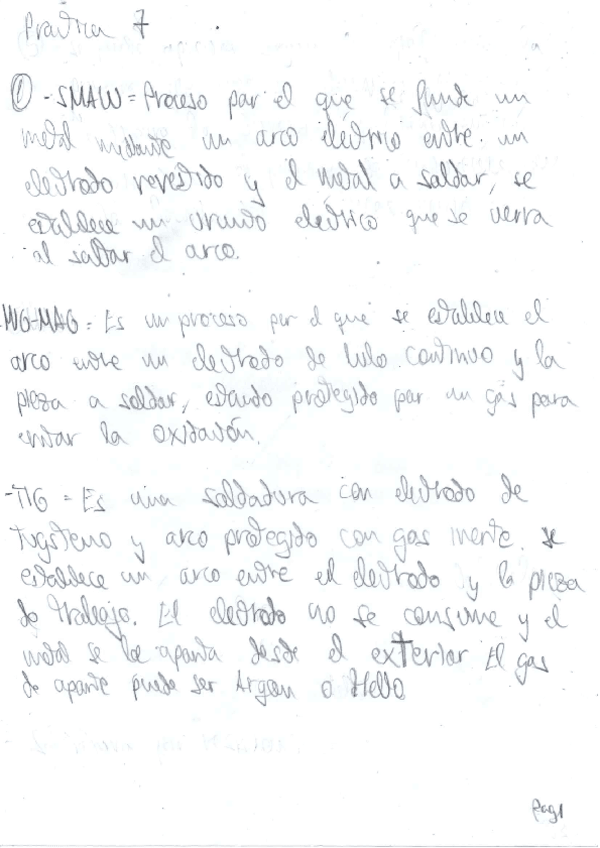 Practica 7
① - SMAW = Proceso por el que se funde un
metal mediante un arco eléctrico entre un
electrodo revestido y el metal a soldar, se
establece un circuito electrico que se cierra
al saltar el arco.
MIG-MAG = Es un proceso por el que se establece el
arco entre un electrodo de hilo continuo y la
pieza a soldar, estando protegido por un gas para
evitar la oxidación.
-TIG = Es una soldadura con electrodo de
tugsteno y arco protegido con gas inerte. se
establece un arco entre el electrodo y la pieza
de trabajo. El electrodo no se consume y el
metal se le aporta desde el exterior El gas
de aporte puede ser Argon o Helio
Pag1